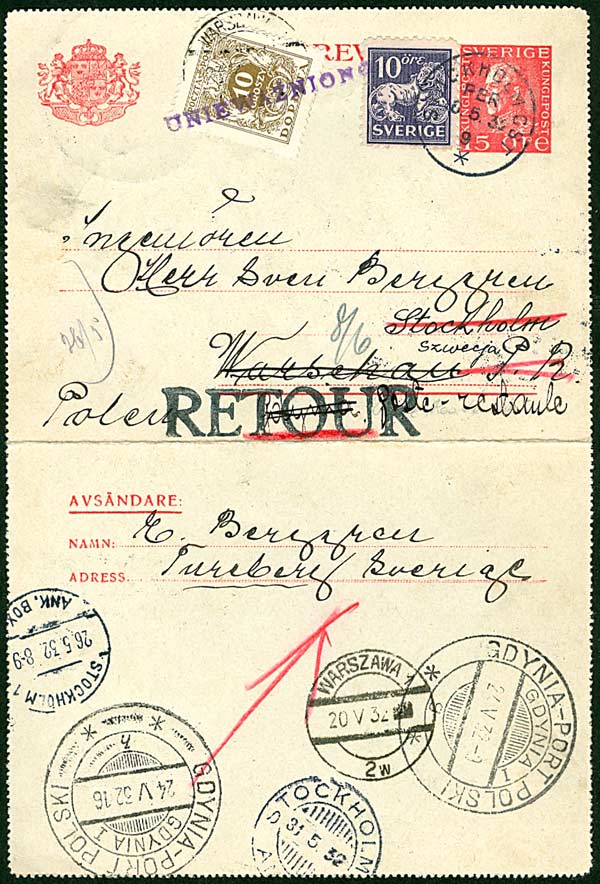 WARSZAWA
BREV
10
DOPŁ
UNIEWAŻNIONO
10 öre
SVERIGE
SVERIGE
KUNGL POSTE
15 ÖRE
STOCKHOLM
5. 32
9
Ingeniören
Herr Sven Berggren
8/6
Stockholm
Szwecja P. R.
Warschau
Polen
RETOUR
Poste-restante
28/5
AVSÄNDARE:
NAMN: E. Berggren
ADRESS. Tureberg Sverige
STOCKHOLM 1
26.5.32.8-9
ANK. BOX
WARSZAWA 1
20 V 32
2w
GDYNIA-PORT POLSKI
24 V 32-9
GDYNIA I
GDYNIA-PORT POLSKI
24 V 32 16
GDYNIA I
STOCKHOLM
31.5.32